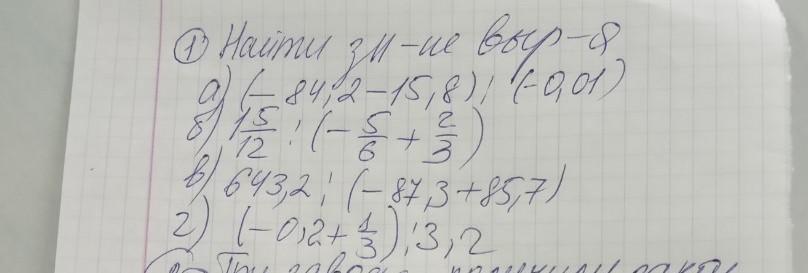 ① Найти зн-ие выр-я
а) (-84,2-15,8) : (-0,01)
б) 1 5/12 : (-5/6 + 2/3)
в) 643,2 : (-87,3+85,7)
г) (-0,2+1/3) : 3,2
Три завода получили